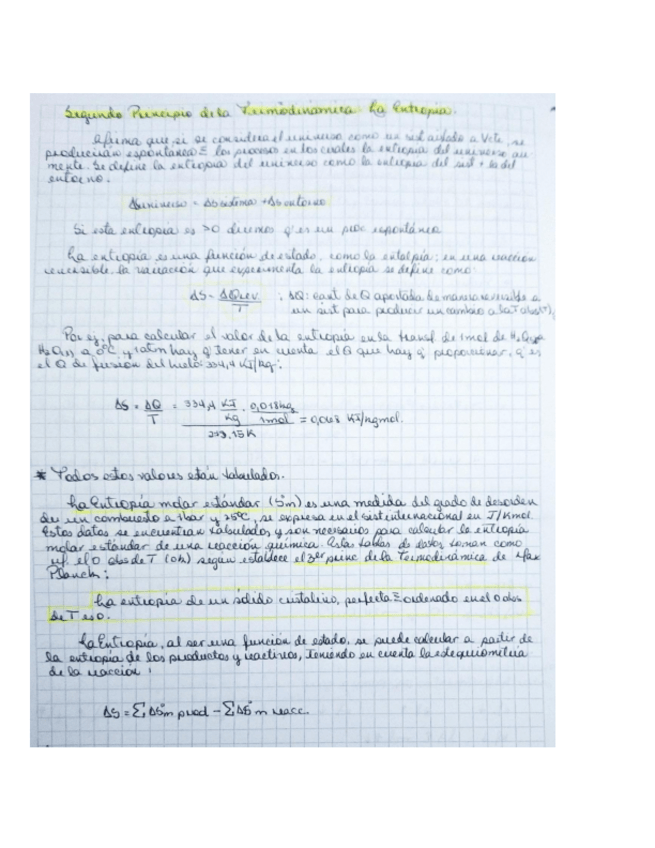 Segundo Principio de la Termodinámica: La Entropía.
Afirma que si se considera el universo como un sist aislado a V cte, se
producirán espontanea≡ los procesos en los cuales la entropía del universo au-
mente. Se define la entropía del universo como la entropía del sist + la del
entorno.
ΔS universo = ΔS sistema + ΔS entorno
Si esta entropía es >0 diremos q' es un proc espontáneo
La entropía es una función de estado, como la entalpía; en una reacción
reversible, la variación que experimenta la entropía se define como:
ΔS = ΔQrev / T ; ΔQ: cant de Q aportada de manera reversible a
un sist para producir un cambio a la T abs (T).
Por ej, para calcular el valor de la entropía en la transf de 1mol de H₂O
H₂O a 0°C y 1atm hay q' tener en cuenta el Q que hay q' proporcionar, q' es
el Q de fusión del hielo: 334,4 KJ/Kg:
ΔS = ΔQ / T = 334,4 KJ/Kg · 0,018kg/1mol / 273.15K = 0,068 KJ/kgmol.
* Todos estos valores están tabulados.
La Entropía molar estándar (S°m) es una medida del grado de desorden
de un compuesto a 1bar y 25°C, se expresa en el sist internacional en J/Kmol.
Estos datos se encuentran tabulados, y son necesarios para calcular la entropía
molar estándar de una reacción química. Estas tablas de datos toman como
ref. el 0 abs de T (0k) según establece el 3er princ de la Termodinámica de Max
Planck:
La entropía de un sólido cristalino, perfecta≡ ordenado en el 0 abs
de T es 0.
La Entropía, al ser una función de estado, se puede calcular a partir de
la entropía de los productos y reactivos, teniendo en cuenta la estequiometría
de la reacción:
ΔS = Σ ΔS°m prod - Σ ΔS°m reacc.